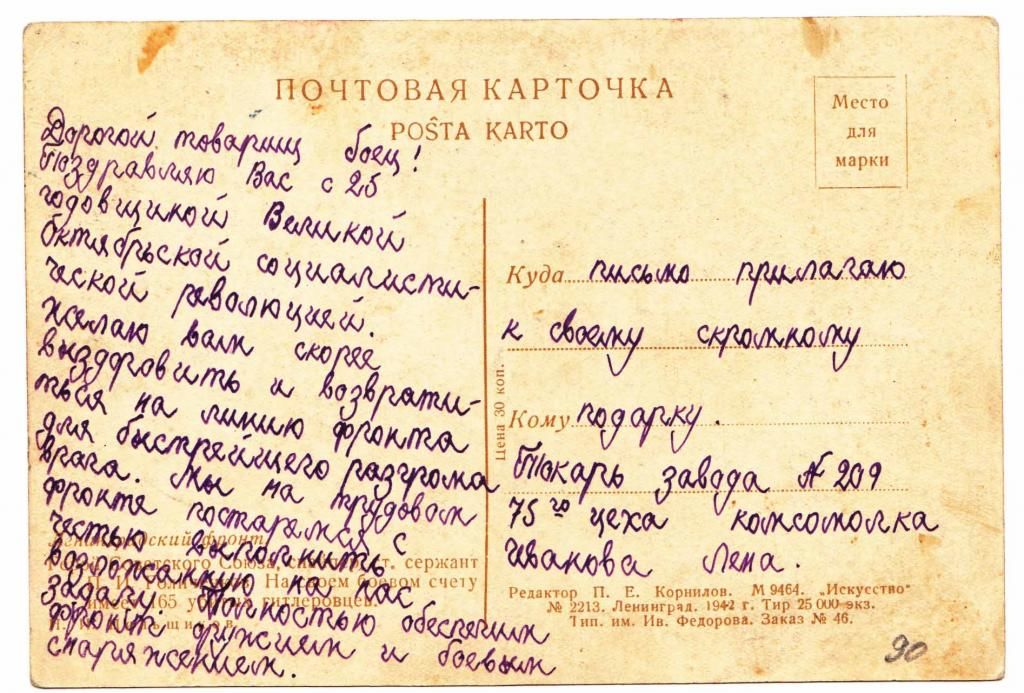 ПОЧТОВАЯ КАРТОЧКА
POŜTA KARTO
Место
для
марки
Дорогой товарищ боец!
Поздравляю Вас с 25
годовщиной Великой
Октябрьской социалисти-
ческой революцией.
Желаю вам скорее
выздровить и возврати-
ться на линию фронта
для быстрейщего разгрома
врага. Мы на трудовом
фронте постараемся с
честью выполнить
возложенную на нас
задачу. Полностью обеспечим
фронт оружием и боевым
снаряжением.
Ленинградский фронт
Советского Союза, ст. сержант
На своем боевом счету
имеет 165 гитлеровцев.
Куда письмо прилагаю
к своему скромному
Кому подарку.
Токарь завода № 209
75го цеха комсомолка
Иванова Лена.
Цена 30 коп.
Редактор П. Е. Корнилов. М 9464. „Искусство"
№ 2213. Ленинград. 1942 г. Тир 25 000 экз.
Тип. им. Ив. Федорова. Заказ № 46.
90